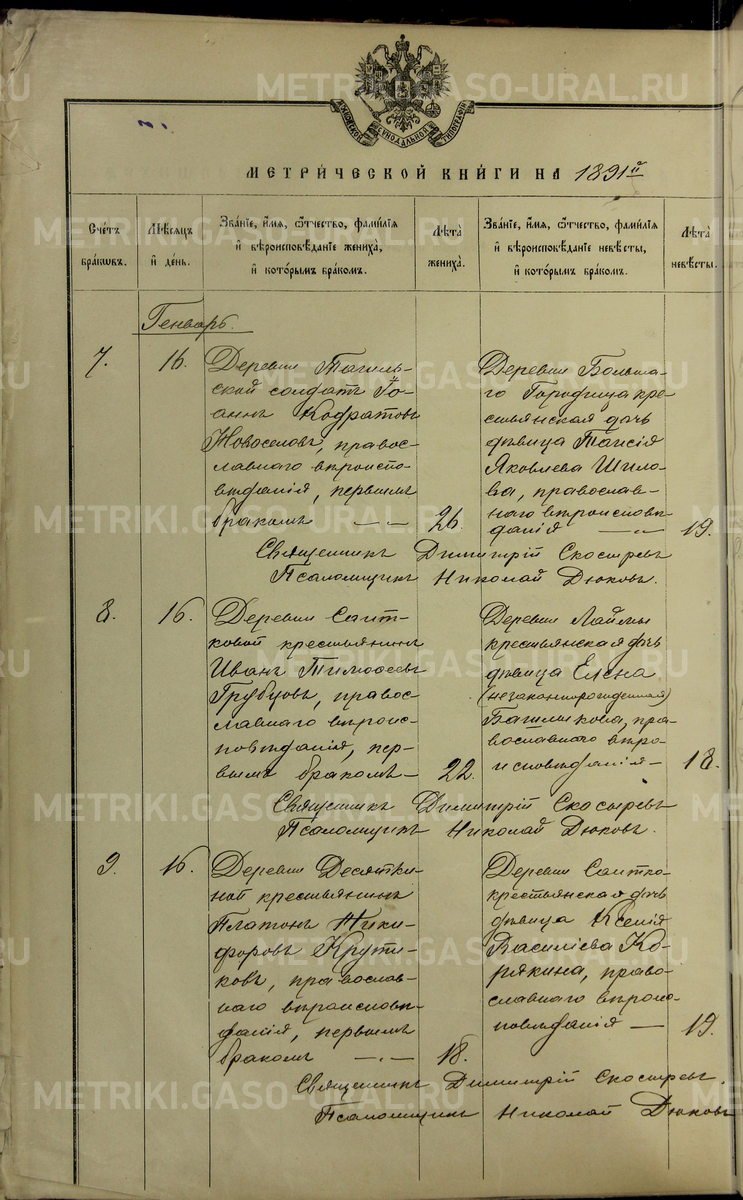 МОСКОВСКОЙ СѴНОДАЛЬНОЙ ТИПОГРАФІИ
МЕТРИ́ЧЕСКОЙ КНИ́ГИ НА 1891й
Сче́тъ бра́кѡвъ.
Мѣ́сяцъ и҆ де́нь.
Зва́нїе, и҆́мя, ѻ҆́тчество, фами́лїя
и҆ вѣроисповѣ́данїе жениха̀,
и҆ кото́рымъ бра́комъ.
Лѣ́та жениха̀.
Зва́нїе, и҆́мя, ѻ҆́тчество, фами́лїя
и҆ вѣроисповѣ́данїе невѣ́сты,
и҆ кото́рымъ бра́комъ.
Лѣ́та невѣ́сты.
Генварь.
7.
16.
Деревни Тагиль-
ской солдатъ Іо-
аннъ Кодратовъ
Новоселовъ, правос-
лавнаго вѣроиспо-
вѣданія, первымъ
бракомъ — „ —
26.
Деревни Больша-
го Городища кре-
стьянская дочь
дѣвица Таисія
Яковлева Шило-
ва, православ-
наго вѣроисповѣ-
данія — „ —
19.
Священникъ Димитрій Скосыревъ
Псаломщикъ Николай Дюковъ.
8.
16.
Деревни Саит-
ковой крестьянинъ
Иванъ Тимоѳеевъ
Трубцовъ, правос-
лавнаго вѣроис-
повѣданія, пер-
вымъ бракомъ —
22.
Деревни Лаймы
крестьянская дочь
дѣвица Елена
(незаконнорожденная)
Башлыкова, пра-
вославнаго вѣро-
исповѣданія —
18.
Священникъ Димитрій Скосыревъ
Псаломщикъ Николай Дюковъ.
9.
16.
Деревни Десятки-
ной крестьянинъ
Платонъ Ники-
форовъ Крути-
ковъ, православ-
наго вѣроисповѣ-
данія, первымъ
бракомъ — „ —
18.
Деревни Саитко-
крестьянская дочь
дѣвица Ксенія
Василіева Ко-
рякина, право-
славнаго вѣроис-
повѣданія —
19.
Священникъ Димитрій Скосыревъ.
Псаломщикъ Николай Дюковъ
METRIKI.GASO-URAL.RU